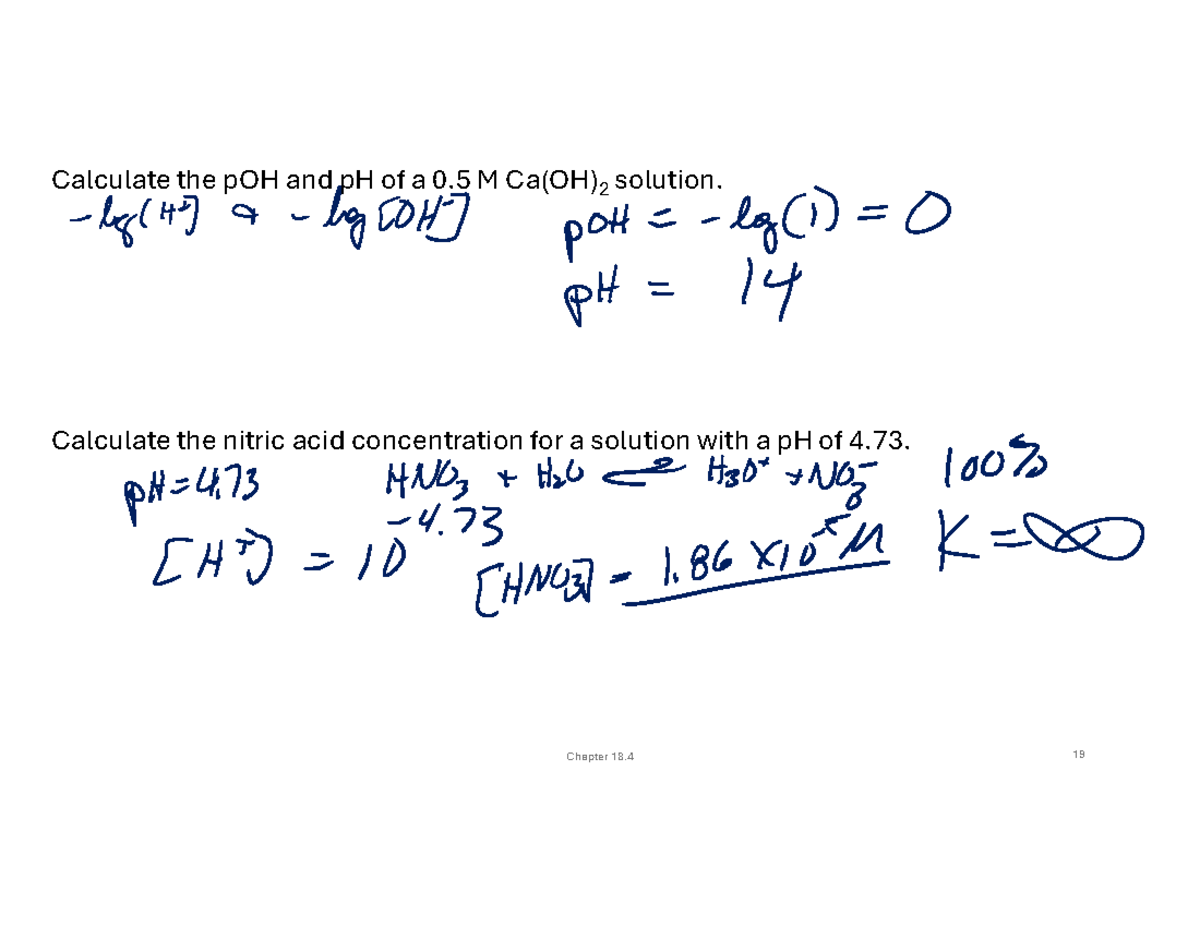 Calculate the pOH and pH of a 0.5 M Ca(OH)₂ solution.
-log[H⁺] & -log[OH⁻]
pOH = -log(1) = 0
pH = 14
Calculate the nitric acid concentration for a solution with a pH of 4.73.
pH = 4.73
HNO₃ + H₂O ⇌ H₃O⁺ + NO₃⁻
100%
[H⁺] = 10^-4.73
[HNO₃] = 1.86 x10⁻⁵ M
K = ∞
Chapter 18.4
19